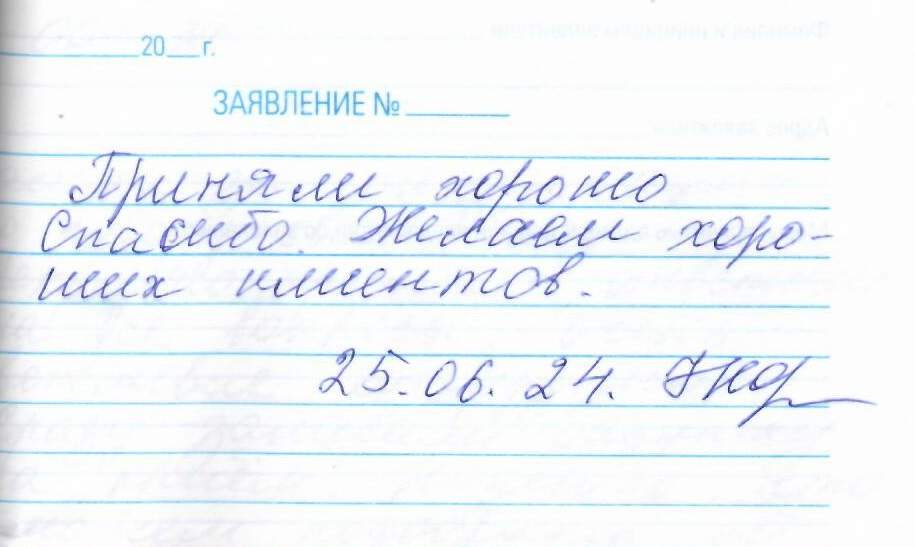 20 г.
ЗАЯВЛЕНИЕ №
Приняли хорошо
спасибо. Желаем хоро-
ших клиентов.
25.06.24.